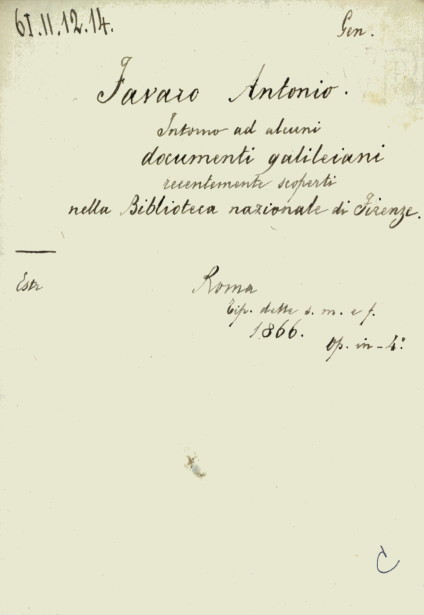 61.11.12.14.
Gen.
Favaro Antonio.
Intorno ad alcuni
documenti galileiani
recentemente scoperti
nella Biblioteca nazionale di Firenze.
Estr
Roma
Tip. delle s. m. e f.
1866.
Op. in-4°
C